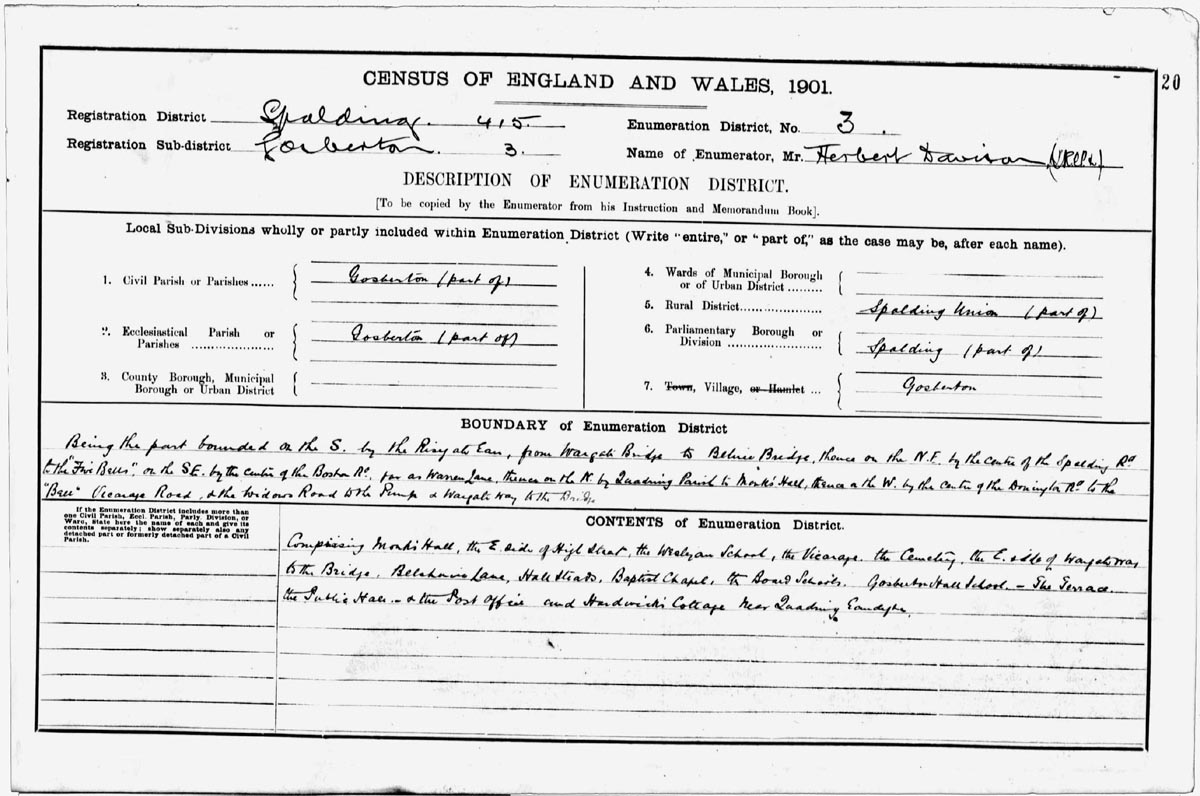 20
CENSUS OF ENGLAND AND WALES, 1901.
Registration District Spalding. 415.
Registration Sub-district Gosberton. 3.
Enumeration District, No. 3.
Name of Enumerator, Mr. Herbert Davison
DESCRIPTION OF ENUMERATION DISTRICT.
[To be copied by the Enumerator from his Instruction and Memorandum Book].
Local Sub-Divisions wholly or partly included within Enumeration District (Write "entire," or "part of," as the case may be, after each name).
1. Civil Parish or Parishes...... Gosberton (part of)
2. Ecclesiastical Parish or
Parishes .................... Gosberton (part of)
3. County Borough, Municipal
Borough or Urban District
4. Wards of Municipal Borough
or of Urban District .........
5. Rural District..................... Spalding Union (part of)
6. Parliamentary Borough or
Division ........................ Spalding (part of)
7. Town, Village, or Hamlet ... Gosberton
BOUNDARY of Enumeration District
Being the part bounded on the S. by the Risegate Eau, from Wargate Bridge to Bridge, thence on the N.E. by the centre of the Spalding Rd
to the "Five Bells", on the S.E. by the centre of the Boston Rd. far as Warren Lane, thence on the N. by Quadring Parish to Monk's Hall, thence on the W. by the centre of the Donington Rd to the
"Bell" Vicarage Road, & the Widows Road to the Pump & Wargate Way to the Bridge
If the Enumeration District includes more than
one Civil Parish, Eccl. Parish, Parly. Division, or
Ward, State here the name of each and give its
contents separately; show separately also any
detached part or formerly detached part of a Civil
Parish.
CONTENTS of Enumeration District.
Comprising Monk's Hall, the E. side of High Street, the Wesleyan School, the Vicarage. the Cemetery, the E. side of Wargate Way
to the Bridge, Lane, Baptist Chapel, the Board Schools. Gosberton Hall School. - The Terrace.
the Public Hall - & the Post Office and Hardwick's Cottage near Quadring Eaudyke.